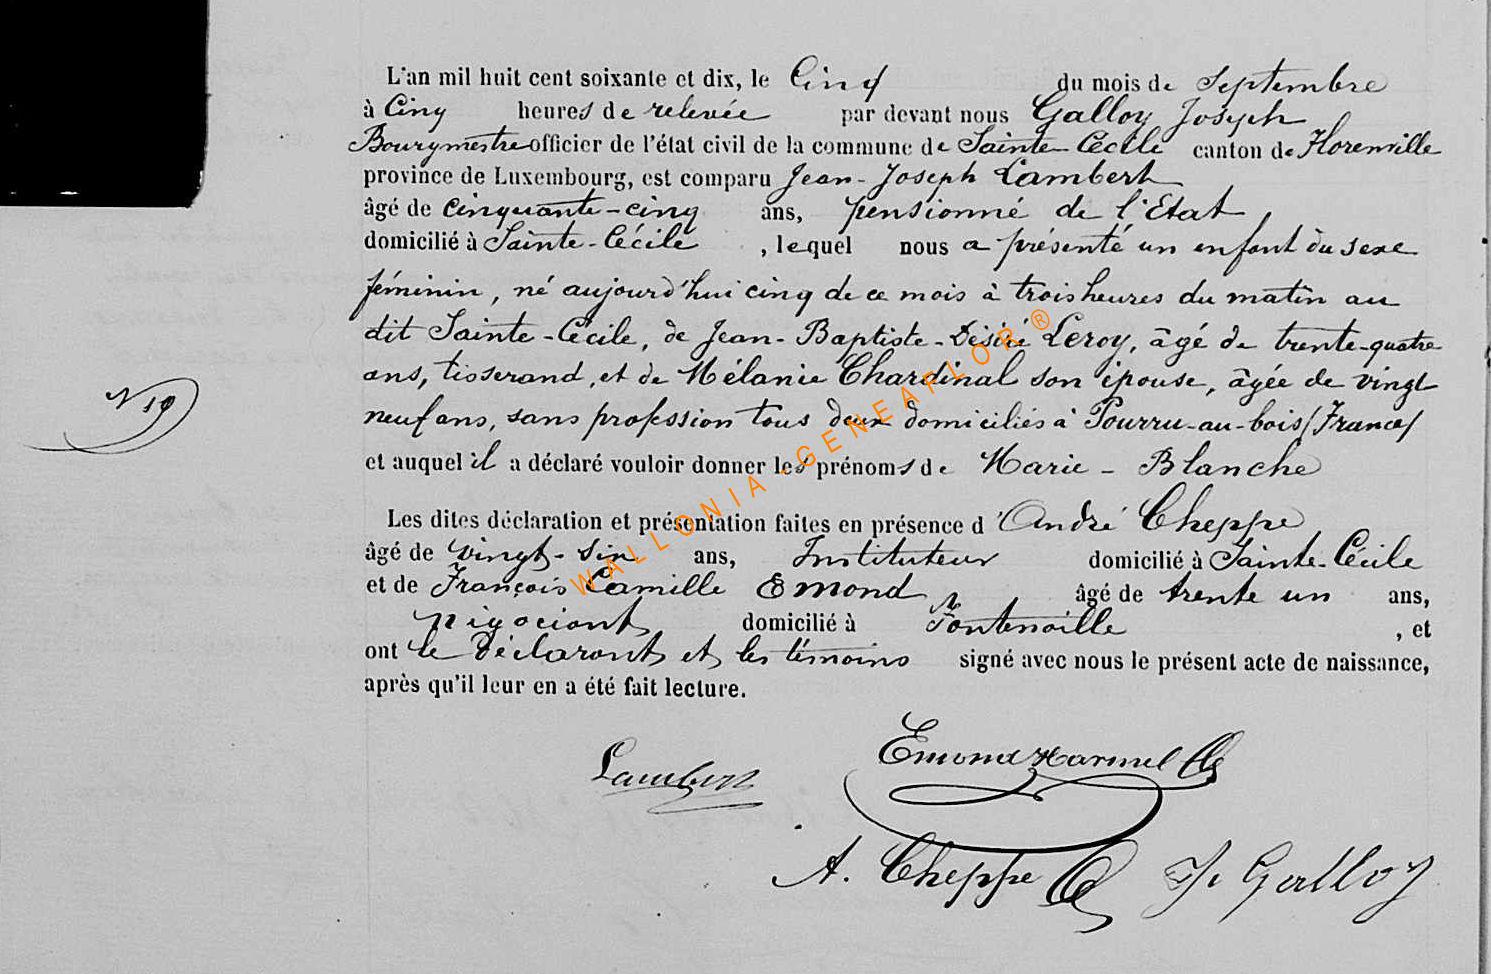 L'an mil huit cent soixante et dix, le Cinq du mois de Septembre
à Cinq heures de relevée par devant nous Galloy Joseph
Bourgmestre officier de l'état civil de la commune de Sainte-Cécile canton de Florenville
province de Luxembourg, est comparu Jean-Joseph Lambert
âgé de Cinquante-cinq ans, pensionné de l'Etat,
domicilié à Sainte-Cécile, lequel nous a présenté un enfant du sexe
féminin, né aujourd'hui cinq de ce mois à trois heures du matin au
dit Sainte-Cécile, de Jean-Baptiste-Désiré Leroy, âgé de trente-quatre
ans, tisserand, et de Mélanie Chardinal son épouse, âgée de vingt
neuf ans, sans profession tous deux domiciliés à Pourru-au-bois (France)
N 19
et auquel il a déclaré vouloir donner les prénoms de Marie-Blanche
Les dites déclaration et présentation faites en présence d'André Cheppe
âgé de vingt-six ans, Instituteur domicilié à Sainte-Cécile
et de François Camille Emond âgé de trente un ans,
négociant domicilié à Fontenoille, et
ont le déclarant et les témoins signé avec nous le présent acte de naissance,
après qu'il leur en a été fait lecture.
Lambert Emond Harmel
A. Cheppe J. Galloy
WALLONIA-GENEAFLOR®